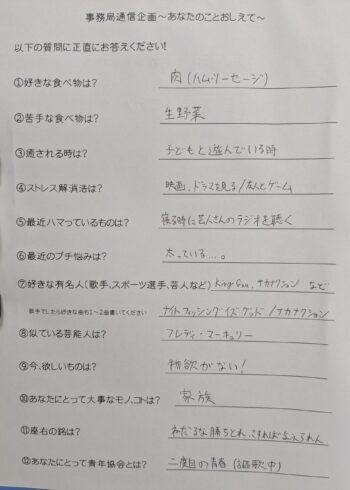 事務局通信企画～あなたのことおしえて～
以下の質問に正直にお答えください!
①好きな食べ物は? 肉(ハム、ソーセージ)
②苦手な食べ物は? 生野菜
③癒される時は? 子どもと遊んでいる時
④ストレス解消法は? 映画、ドラマを見る/友人とゲーム
⑤最近ハマっているものは? 寝る時に芸人さんのラジオを聴く
⑥最近のプチ悩みは? 太っている....。
⑦好きな有名人(歌手、スポーツ選手、芸人など) King Gnu、サカナクション など
歌手でしたら好きな曲も1～2曲書いてください ナイトフィッシングイズグッド/サカナクション
⑧似ている芸能人は? フレディ・マーキュリー
⑨今、欲しいものは? 物欲がない!
⑩あなたにとって大事なモノ、コトは? 家族
⑪座右の銘は? わだるな勝ちとれ、さすれば与えられん
⑫あなたにとって青年協会とは? 二度目の青春(謳歌中)